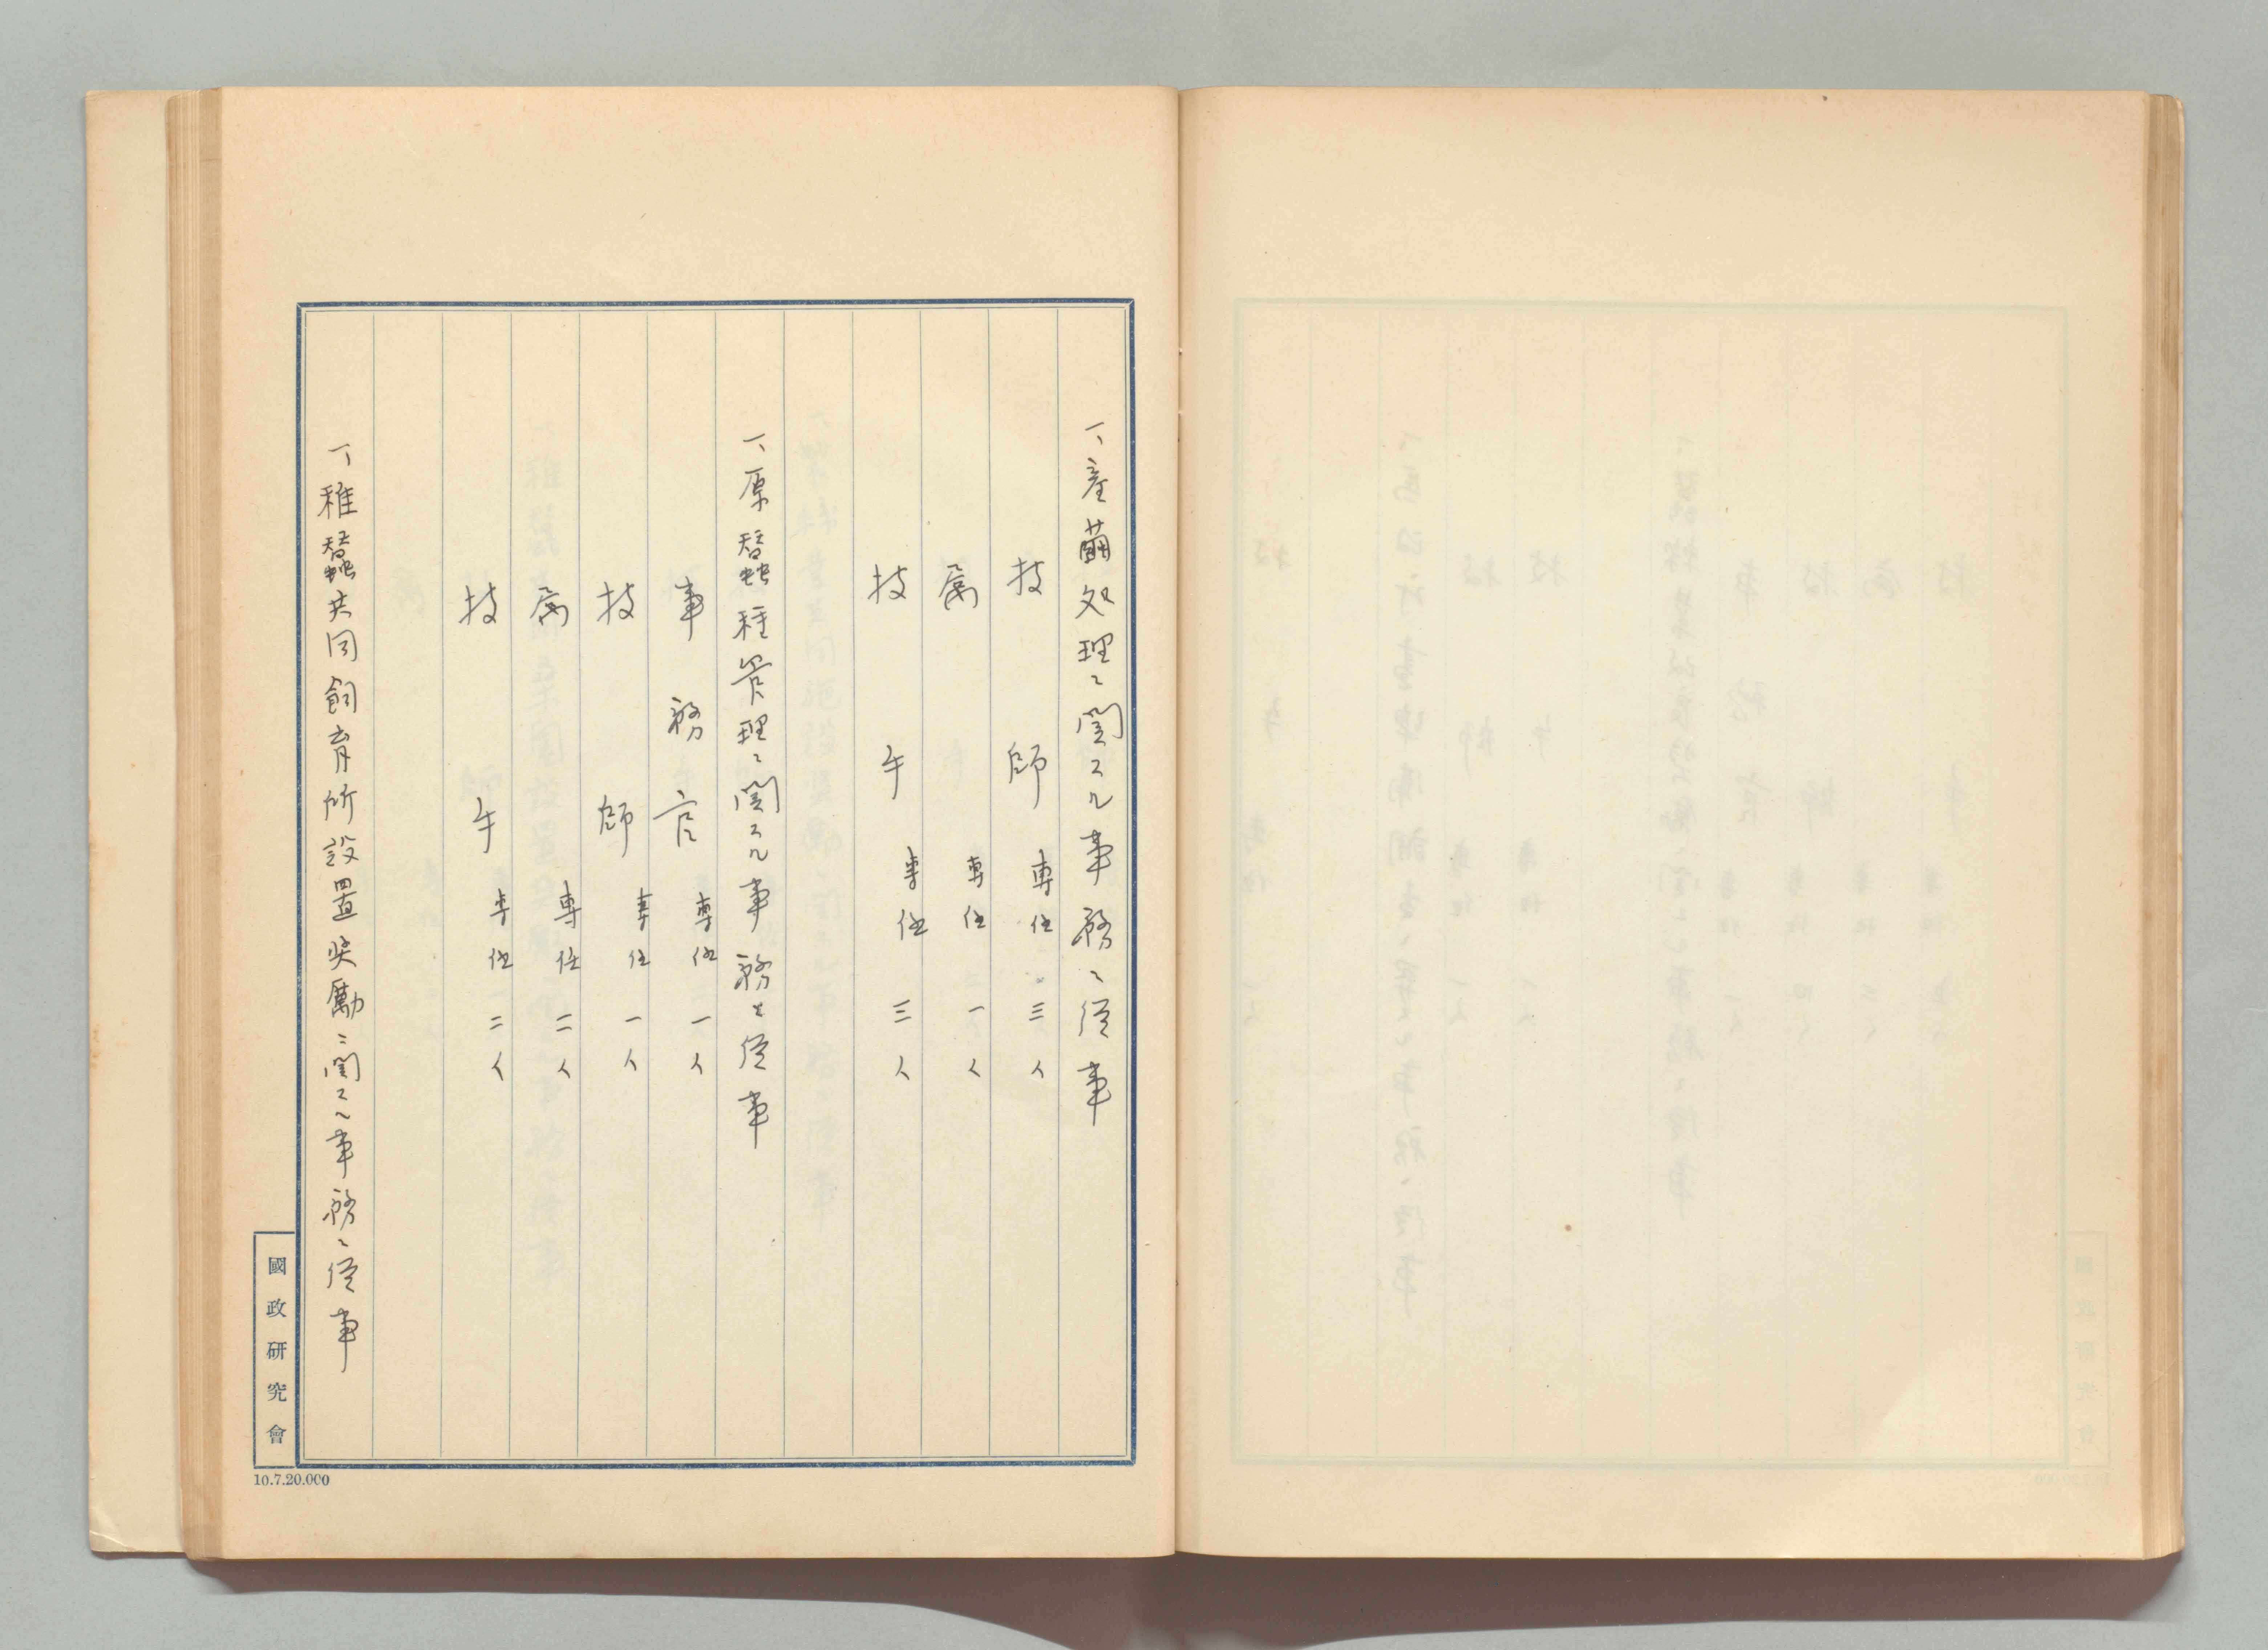 一、産繭処理ニ関スル事務ニ従事
技師 専任 三人
属 専任 一人
技手 専任 三人
一、原蠶種管理ニ関スル事務ニ従事
事務官 専任 一人
技師 専任 一人
属 専任 二人
技手 専任 二人
一、稚蠶共同飼育所設置奨励ニ関スル事務ニ従事
國政研究會
10.7.20.000